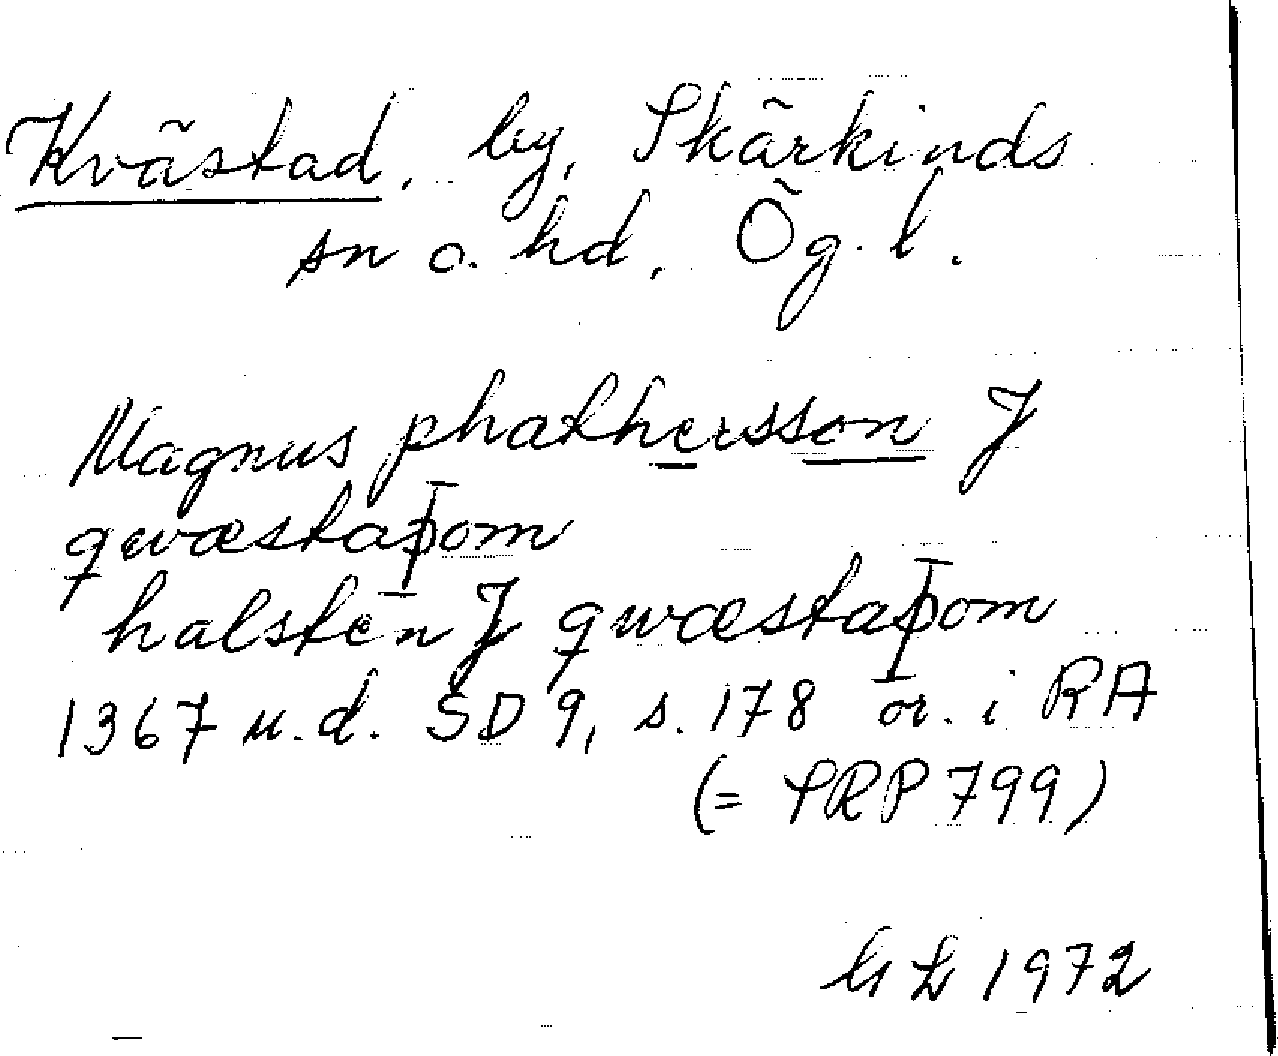 Kvästad, by, Skärkinds
sn o. hd, Ög. l.
Magnus phathersson J
qwæstaþom
halsten J qwæstaþom
1367 u.d. SD 9, s. 178 or. i RA
(= SRP 799)
GL 1972